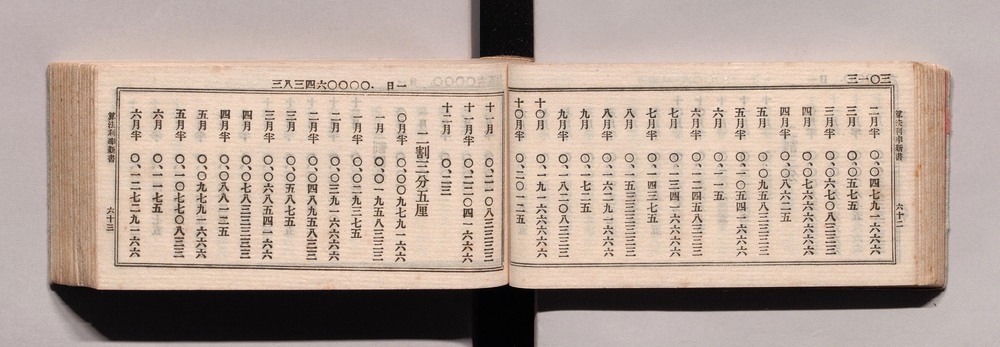 三〇一三
二月半 〇、〇四七九一六六六
三月 〇、〇五七五
三月半 〇、〇六七〇八三三三
四月 〇、〇七六六六六六六
四月半 〇、〇八六二五
五月 〇、〇九五八三三三三
五月半 〇、一〇五四一六六六
六月 〇、一一五
六月半 〇、一二四五八三三三
七月 〇、一三四一六六六六
七月半 〇、一四三七五
八月 〇、一五三三三三三三
八月半 〇、一六二九一六六六
九月 〇、一七二五
九月半 〇、一八二〇八三三三
十〇月 〇、一九一六六六六六
十〇月半 〇、二〇一二五
六十二
一日 .〇〇〇〇六四三八三
十一月 〇、二一〇八三三三三
十一月半 〇、二二〇四一六六六
十二月 〇、二三
二割三分五厘
〇月半 〇、〇〇九七九一六六
一月 〇、〇一九五八三三三
一月半 〇、〇二九三七五
二月 〇、〇三九一六六六六
二月半 〇、〇四八九五八三三
三月 〇、〇五八七五
三月半 〇、〇六八五四一六六
四月 〇、〇七八三三三三三
四月半 〇、〇八八一二五
五月 〇、〇九七九一六六六
五月半 〇、一〇七七〇八三三
六月 〇、一一七五
六月半 〇、一二七二九一六六
六十三